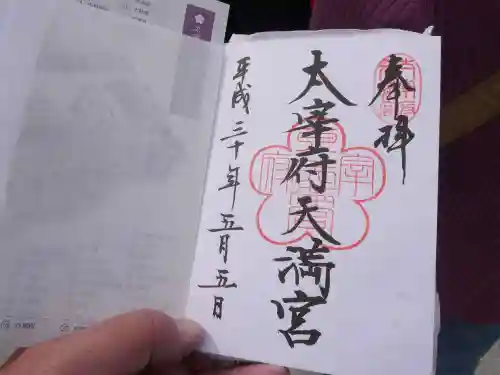 奉拝
太宰府天満宮
平成三十年五月五日